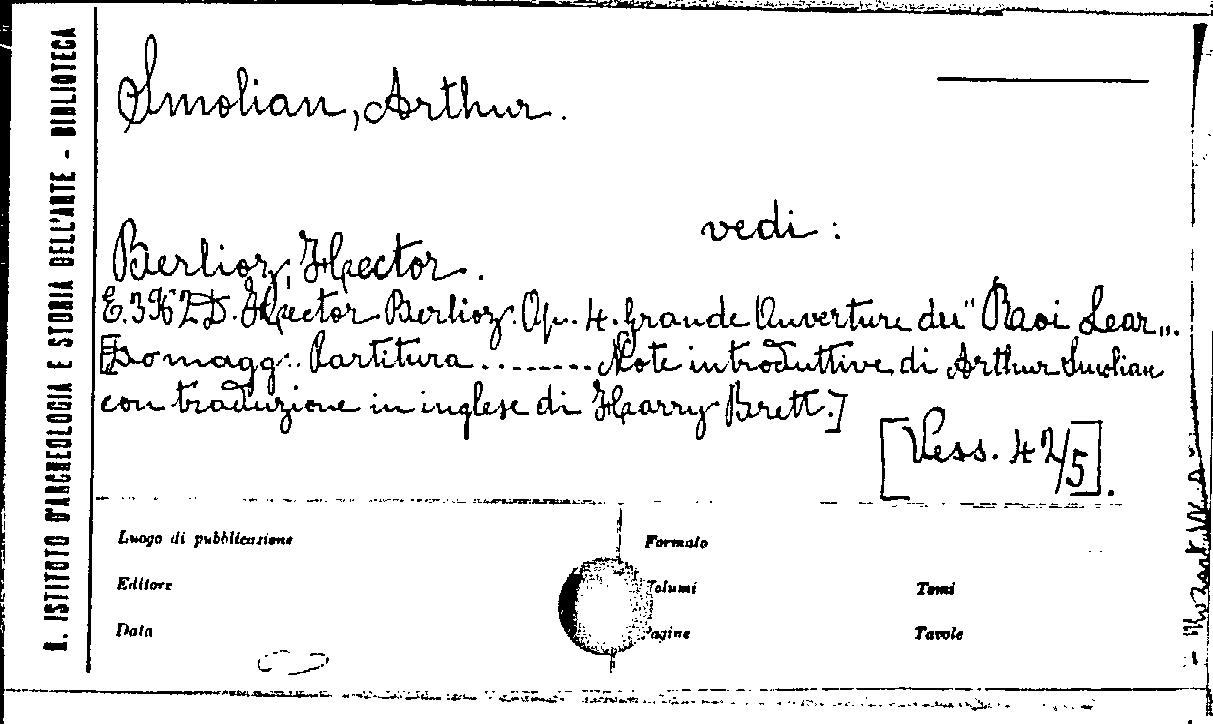 R. ISTITUTO D'ARCHEOLOGIA E STORIA DELL'ARTE - BIBLIOTECA
Smolian, Arthur.
vedi :
Berlioz, Hector.
E. 3962 D. Hector Berlioz. Op. 4. Grande Ouverture du " Roi Lear „.
[Do magg. Partitura ........ Note introduttive di Arthur Smolian
con traduzione in inglese di Harry Brett.]
[Vess. 42/5].
Luogo di pubblicazione
Formato
Editore
Volumi
Tomi
Data
Pagine
Tavole